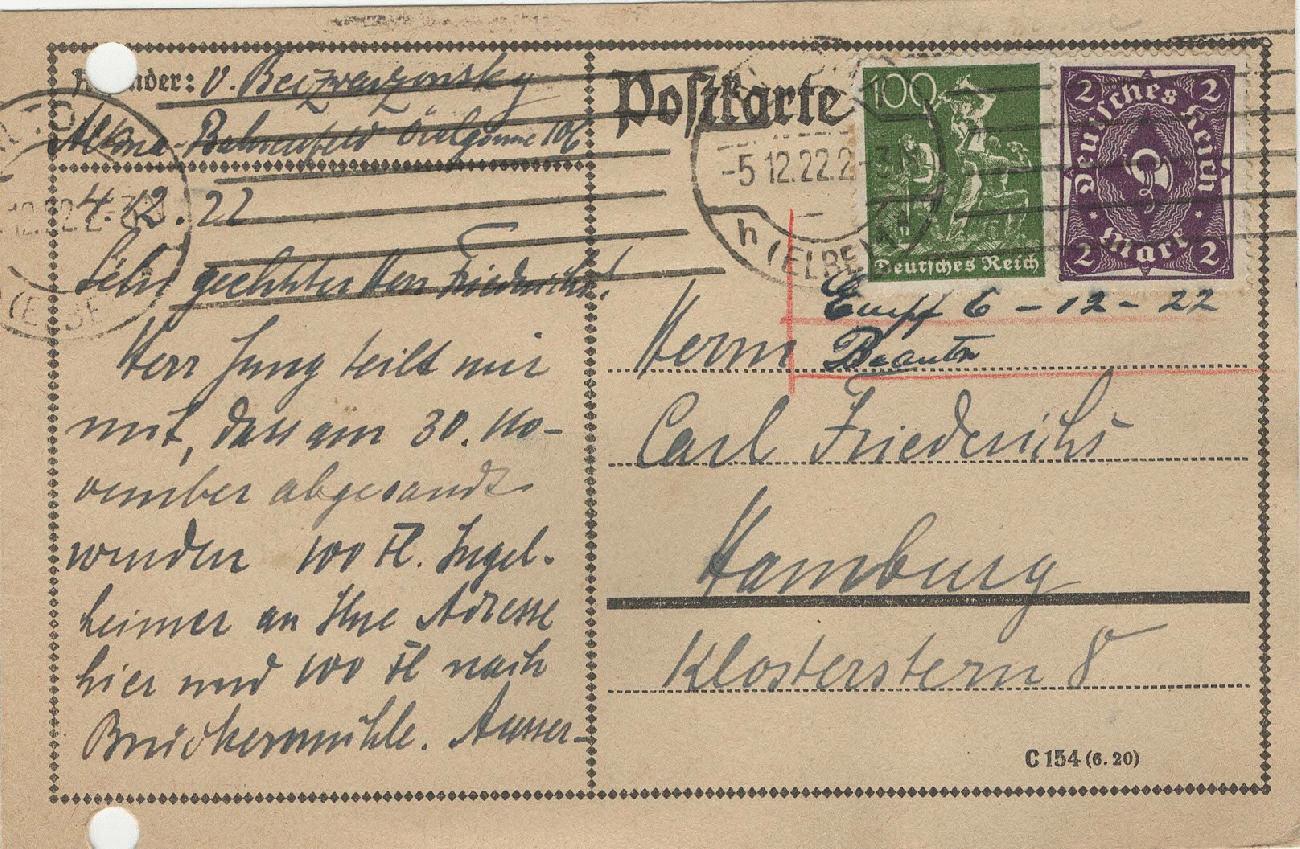 nder: v.
Altona-Bahrenfeld Övelgönne 106
4.12.22
Sehr geehrter Herr Friederichs!
Herr Jung teilt mir
mit, dass am 30. No-
vember abgesandt
wurden 100 Fl. Ingel-
heimer an Ihre Adresse
hier und 100 Fl nach
Brückermühle. Ausser-
Postkarte
-5.12.22.2-3 N
h (ELBE) 1
100
Deutsches Reich
2 2
Deutsches Reich
Mark
2 2
Empf 6-12-22
Beantw
Herrn
Carl Friederichs
Hamburg
Klosterstern 8
C 154 (6. 20)